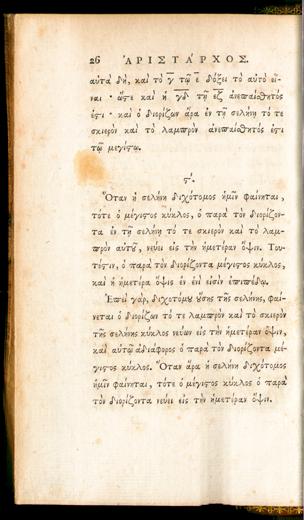 26 ἈΡΙΣΤΑΡΧΟΣ.
αυτὰ δὴ, καὶ τὸ γ τῷ ε δόξει τὸ αὐτὸ εἶ-
ναι· ὥςε καὶ ἡ γδ τῇ εζ ἀνεπαίσθητός
ἐςι· καὶ ὁ διορίζων ἄρα ἐν τῇ σελήνῃ τό τε
σκιερὸν καὶ τὸ λαμπρὸν ἀνεπαίσθητός ἐςι
τῷ μεγίςῳ.
ς´.
Ὅταν ἡ σελήνη διχότομος ἡμῖν φαίνηται,
τότε ὁ μέγιςος κύκλος, ὁ παρὰ τὸν διορίζον-
τα ἐν τῇ σελήνῃ τό τε σκιερὸν καὶ τὸ λαμ-
πρὸν αὐτῦ, νεύει εἰς τὴν ἡμετέραν ὄψιν. Του-
τέςιν, ὁ παρὰ τὸν διορίζοντα μέγιςος κύκλος,
καὶ ἡ ἡμετέρα ὄψις ἐν ἑνί εἰσιν ἐπιπέδῳ.
Ἐπεὶ γὰρ, διχοτόμου ὔσης τῆς σελήνης, φαί-
νεται ὁ διορίζων τό τε λαμπρὸν καὶ τὸ σκιερὸν
τῆς σελήνης κύκλος νεύων εἰς τὴν ἡμετέραν ὄψιν,
καὶ αὐτῷ ἀδιάφορος ὁ παρὰ τὸν διορίζοντα μέ-
γιςος κύκλος. Ὅταν ἄρα ἡ σελήνη διχότομος
ἡμῖν φαίνηται, τότε ὁ μέγιςος κύκλος ὁ παρὰ
τὸν διορίζοντα νεύει εἰς τὴν ἡμετέραν ὄψιν.